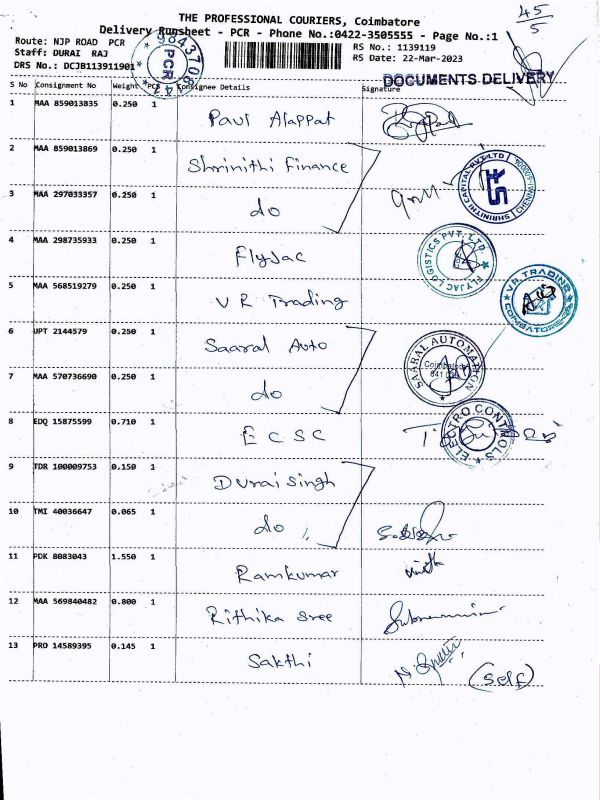 45
5
THE PROFESSIONAL COURIERS, Coimbatore
Delivery Runsheet - PCR - Phone No.:0422-3505555 - Page No.:1
Route: NJP ROAD PCR
RS No.: 1139119
Staff: DURAI RAJ
RS Date: 22-Mar-2023
DRS No.: DCJB113911901
PCR
DOCUMENTS DELIVERY
S No Consignment No Weight PCS Consignee Details Signature
1 MAA 859013835 0.250 1 Paul Alappat
2 MAA 859013869 0.250 1 Shrinithi Finance
SHRINITHI CAPITAL PVT LTD
3 MAA 297033357 0.250 1 do
4 MAA 298735933 0.250 1 Flyjac
FLYJAC LOGISTICS PVT. LTD
5 MAA 568519279 0.250 1 V R Trading
VR TRADING
COIMBATORE
6 UPT 2144579 0.250 1 Saaral Auto
SAARAL AUTOMATION
Coimbatore
641
7 MAA 570736690 0.250 1 do
8 EDQ 15875599 0.710 1 E C S C
ELECTRO CONTROLS
9 TDR 100009753 0.150 1 Durai Singh
10 TMI 40036647 0.065 1 do "
11 PDK 8083043 1.550 1 Ramkumar
12 MAA 569840482 0.800 1 Rithika Sree
13 PRO 14589395 0.145 1 Sakthi
(Self)